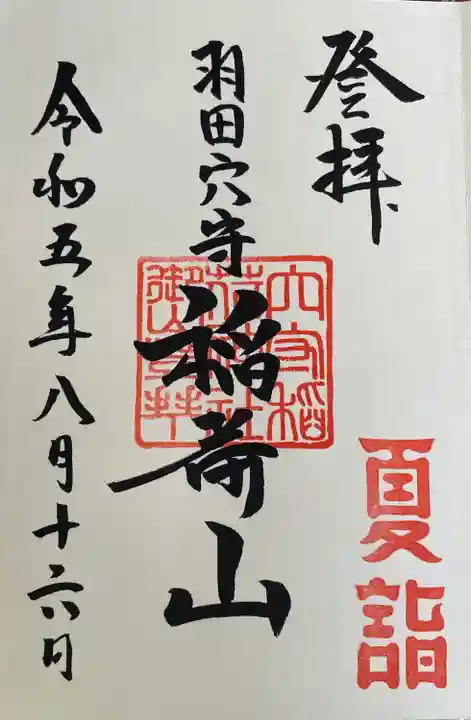 登拝
夏詣
羽田穴守稲荷山
穴守稲
荷神社
御山登拝
令和五年八月十六日